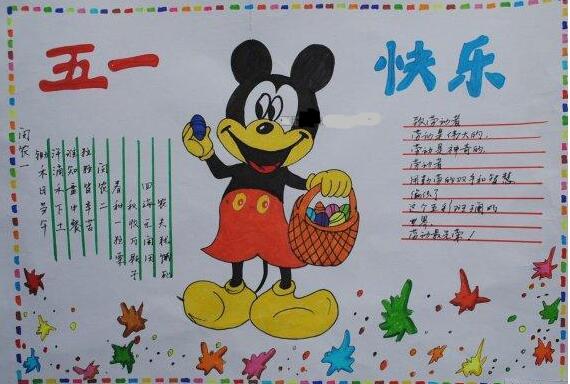 五一
快乐
闵农一
锄禾日当午
汗滴禾下土
谁知盘中餐
粒粒皆辛苦
闵农二
春种一粒粟
秋收万颗子
四海无闲田
农夫犹饿死
致劳动者
劳动是伟大的,
劳动是神奇的,
劳动者
用勤劳的双手和智慧
编织了
这个五彩斑斓的
世界
劳动最光荣！